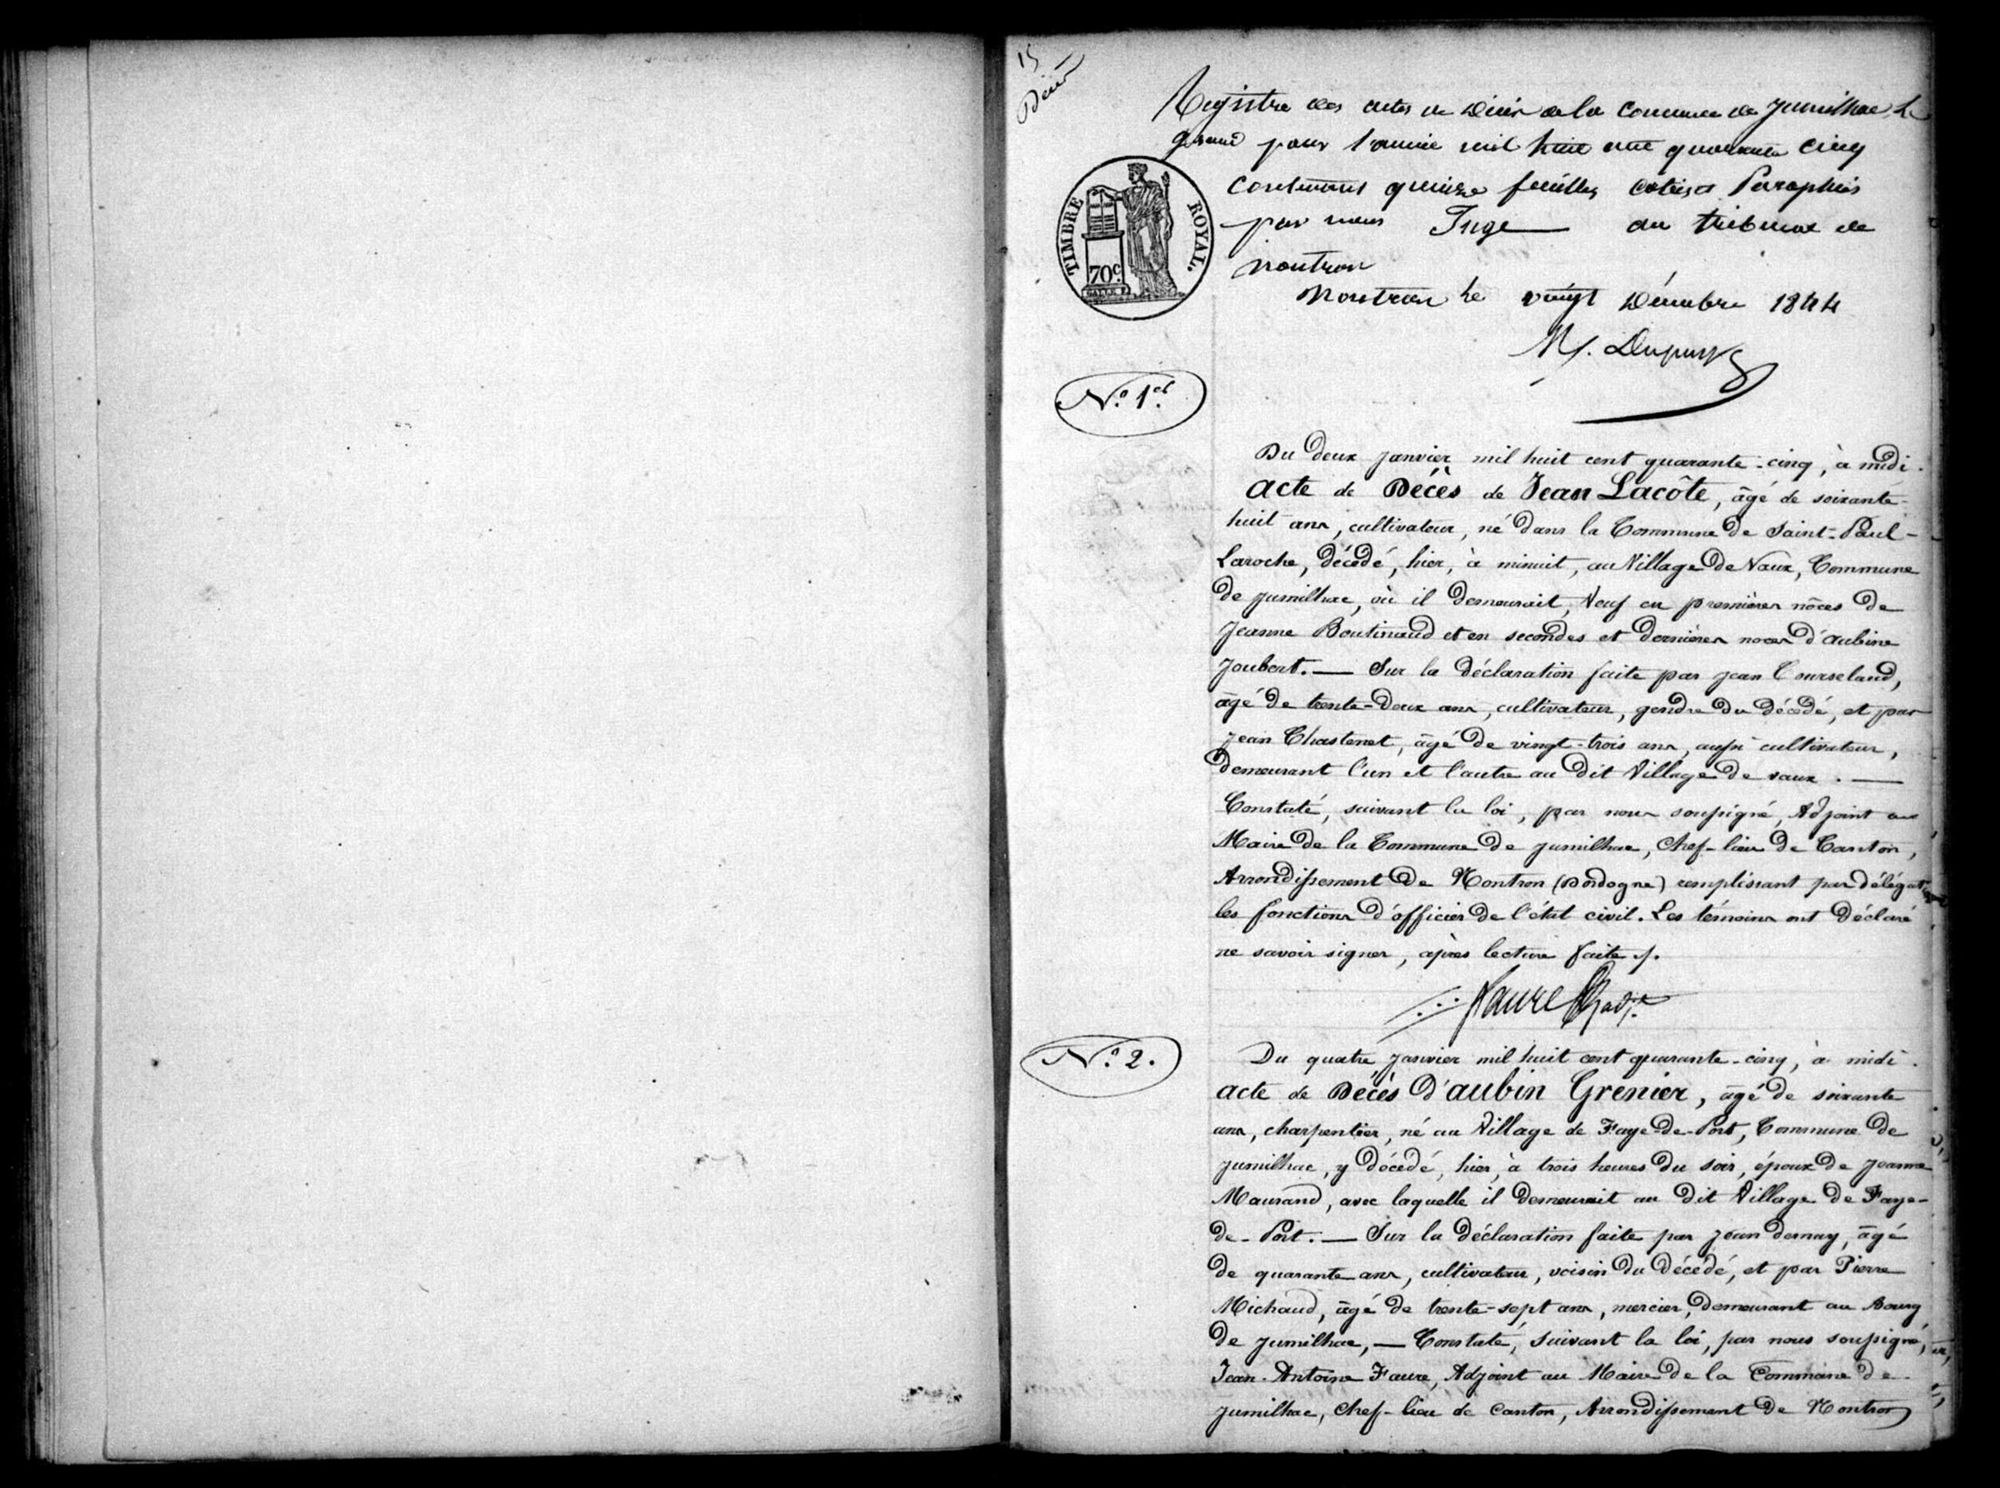 15
Décès
Registre des actes de Décès de la commune de Jumilhac le
grand pour l'année mil huit cent quarante cinq
contenant quinze feuilles cotées et Paraphés
par nous Juge au tribunal de
nontron
Nontron le vingt Décembre 1844
Dupuy
TIMBRE ROYAL.
70c.
N.° 1er.
Du deux janvier mil huit cent quarante-cinq, à midi.
acte de Décès de Jean Lacôte, âgé de soixante-
huit ans, cultivateur, né dans la Commune de Saint-Paul-
Laroche, décédé, hier, à minuit, au Village de Vaux, Commune
de jumilhac, où il demeurait, Veuf en premières nôces de
Jeanne Boutinaud et en secondes et dernières noces d'aubine
Joubert. — Sur la déclaration faite par jean Courseland,
âgé de trente-deux ans, cultivateur, gendre du décédé, et par
jean Chastenet, âgé de vingt-trois ans, aussi cultivateur,
demeurant l'un et l'autre au dit Village de vaux. —
Constaté, suivant la loi, par nous soussigné, Adjoint au
Maire de la Commune de jumilhac, Chef-lieu de Canton,
Arrondissement de Nontron (Dordogne) remplissant par délégation
les fonctions d'officier de l'état civil. Les témoins ont déclaré
ne savoir signer, après lecture faite ./.
Faure
N.° 2.
Du quatre janvier mil huit cent quarante-cinq, à midi.
acte de Décès d'aubin Grenier, âgé de soixante
ans, charpentier, né au Village de Faye-de-Port, Commune de
jumilhac, y décédé, hier, à trois heures du soir, époux de jeanne
Maurand, avec laquelle il demeurait au dit Village de Faye-
de-Port. — Sur la déclaration faite par jean dernay, âgé
de quarante ans, cultivateur, voisin du décédé, et par Pierre
Michaud, âgé de trente-sept ans, mercier, demeurant au Bourg
de jumilhac, — Constaté, suivant la loi, par nous soussigné,
Jean-Antoine Faure, Adjoint au Maire de la Commune de
jumilhac, chef-lieu de canton, Arrondissement de Nontron